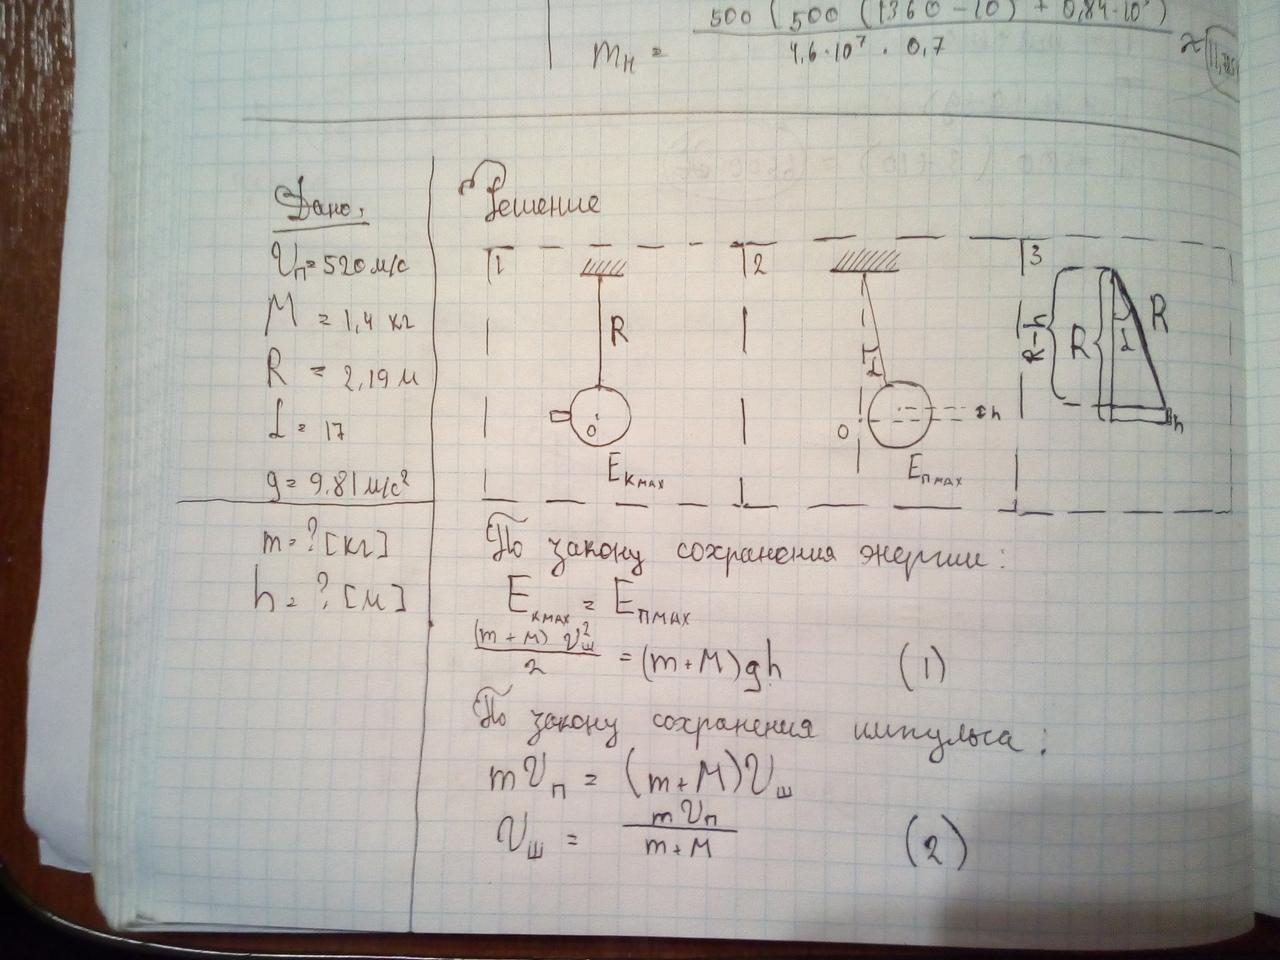 500 ( 500 (1360 - 10) + 0,84·10
m н =
4,6·10⁷ · 0,7
≈
Дано:
Решение
υп = 520 м/с
M = 1,4 кг
R = 2,19 м
α = 17
g = 9.81 м/с²
m = ? [кг]
h = ? [м]
1
R
O
Eк max
2
α
O
h
Eп max
3
R-h
R
α
R
h
По закону сохранения энергии:
Eк max = Eп max
(m + M) υш²
2
= (m + M) gh (1)
По закону сохранения импульса:
m υп = (m + M) υш
υш =
m υп
m + M
(2)